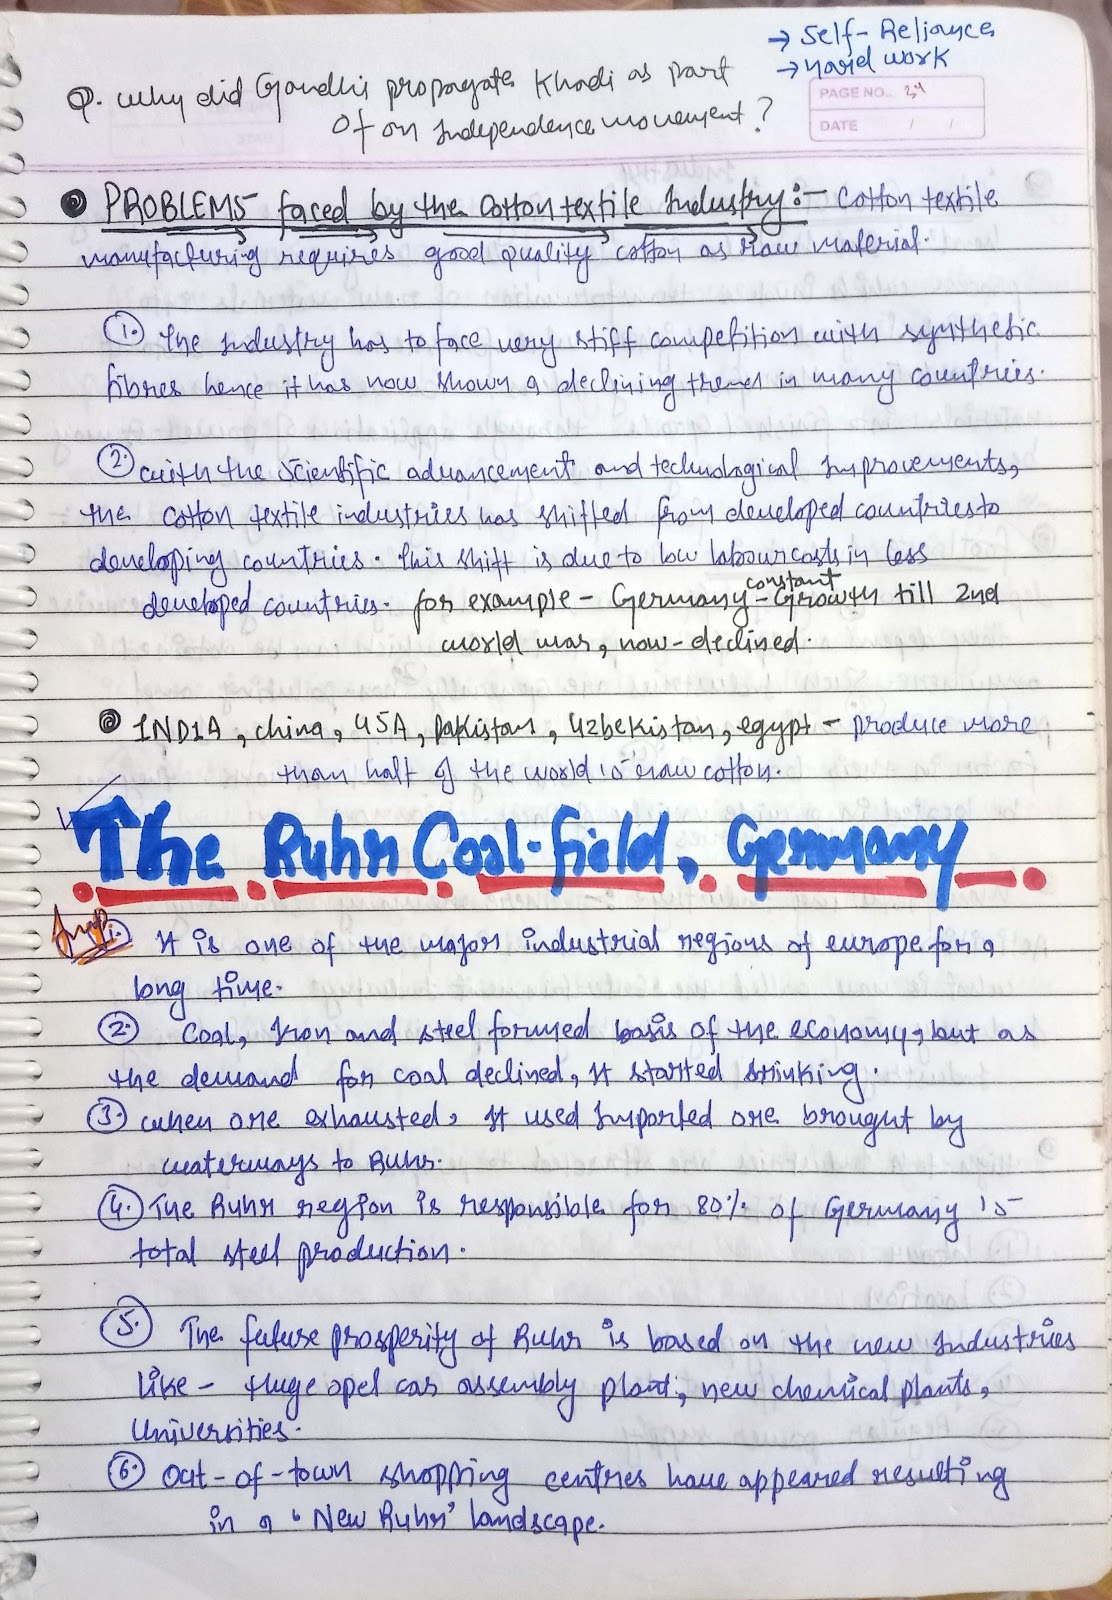 → Self-Reliance
→ Hard work
Q. Why did Gandhi propagate Khadi as part
of an Independence movement?
PAGE NO. 34
DATE / /
PROBLEMS faced by the Cotton textile Industry:- Cotton textile
manufacturing requires good quality cotton as raw material.
1. The Industry has to face very stiff competition with synthetic
fibres hence it has now shown a declining trend in many countries.
2. with the scientific advancement and technological Improvements,
the cotton textile industries has shifted from developed countries to
developing countries. This shift is due to low labour costs in less
constant
developed countries. for example - Germany - Growth till 2nd
world war, now - declined.
INDIA, china, USA, pakistan, Uzbekistan, egypt - produce more
than half of the world's raw cotton.
The Ruhr Coal-field, Germany
Imp
1. It is one of the major industrial regions of europe for a
long time.
2. Coal, Iron and steel formed basis of the economy, but as
the demand for coal declined, It started srinking.
3. when ore exhausted, It used Imported ore brought by
waterways to Ruhr.
4. The Ruhr region is responsible for 80% of Germany's
total steel production.
5. The future prosperity of Ruhr is based on the new Industries
like - Huge opel car assembly plant, new chemical plants,
Universities.
6. Out-of-town shopping centres have appeared resulting
in a 'New Ruhr' landscape.